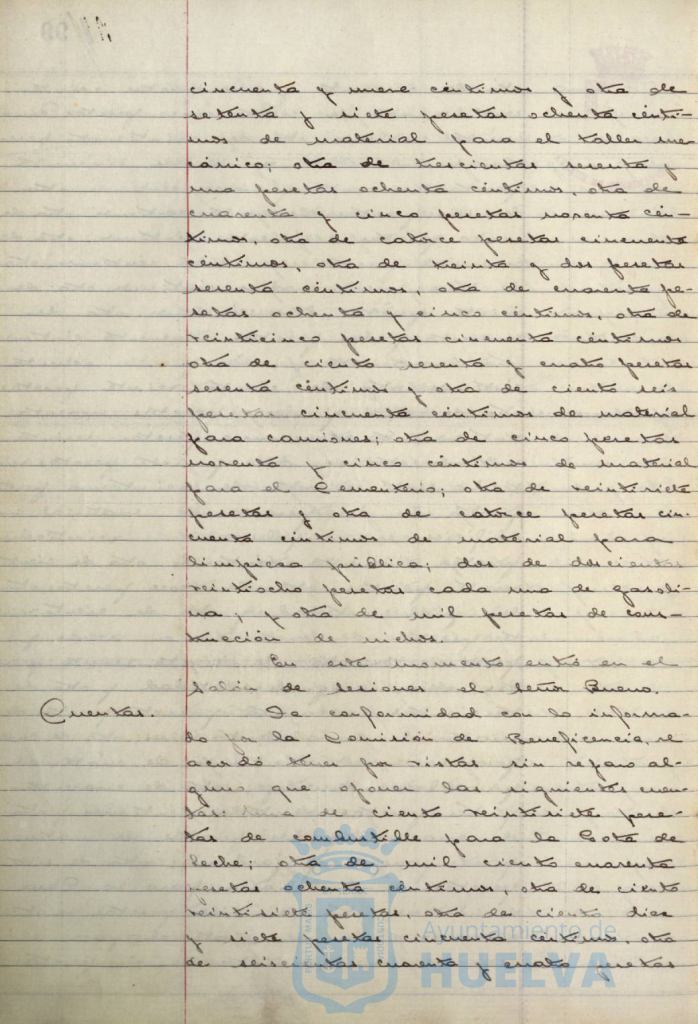 cincuenta y nueve céntimos y otra de
setenta y siete pesetas ochenta cénti-
mos de material para el taller me-
cánico; otra de trescientas sesenta y
una pesetas ochenta céntimos, otra de
cuarenta y cinco pesetas noventa cén-
timos, otra de catorce pesetas cincuenta
céntimos, otra de treinta y dos pesetas
sesenta céntimos, otra de cuarenta pe-
setas ochenta y cinco céntimos, otra de
veinticinco pesetas cincuenta céntimos
otra de ciento sesenta y cuatro pesetas
sesenta céntimos y otra de ciento seis
pesetas cincuenta céntimos de material
para camiones; otra de cinco pesetas
noventa y cinco céntimos de material
para el Cementerio; otra de veintisiete
pesetas y otra de catorce pesetas cin-
cuenta céntimos de material para
limpieza pública; dos de doscientas
veintiocho pesetas cada una de gasoli-
na; y otra de mil pesetas de cons-
trucción de nichos.
En este momento entró en el
Salón de sesiones el señor Bueno.
Cuentas. De conformidad con lo informa-
do por la Comisión de Beneficencia, se
acordó tener por vistas sin reparo al-
guno que oponer las siguientes cuen-
tas: una de ciento veintisiete pese-
tas de combustible para la Gota de
Leche; otra de mil ciento cuarenta
pesetas ochenta céntimos, otra de ciento
veintisiete pesetas, otra de ciento diez
y siete pesetas cincuenta céntimos, otra
de seiscientas cuarenta y cuatro pesetas
Ayuntamiento de
HUELVA